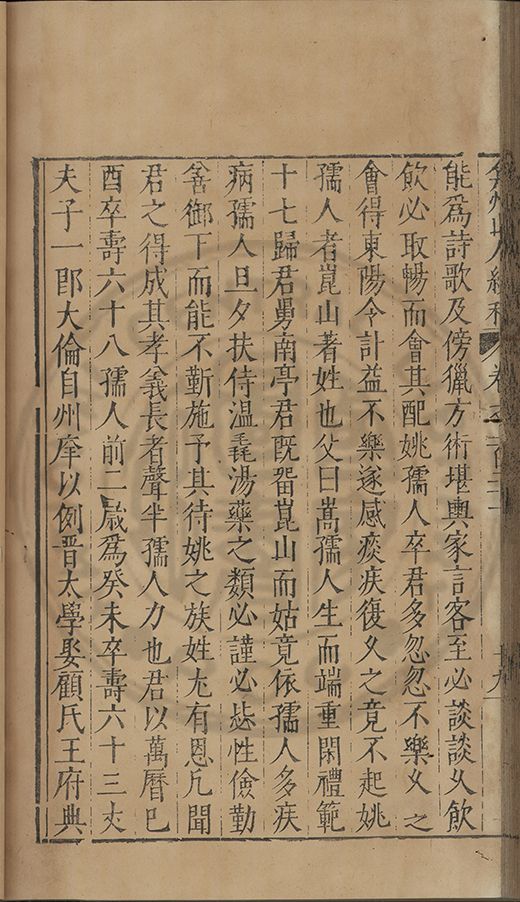 弇州山人續稿 卷之一百二十 十九
能爲詩歌及傍獵方術堪輿家言客至必談談夊飲
飲必取暢而會其配姚孺人卒君多忽忽不樂夊之
會得東陽令計益不樂遂感痰疾復夊之竟不起姚
孺人者崑山著姓也父曰嵩孺人生而端重閑禮範
十七歸君舅南亭君既畱崑山而姑竟依孺人多疾
病孺人旦夕扶侍温毳湯藥之類必謹必恷性儉勤
善御下而能不靳施予其待姚之族姓尢有恩凢聞
君之得成其孝義長者聲半孺人力也君以萬曆巳
酉卒壽六十八孺人前二歲爲癸未卒壽六十三丈
夫子一郎大倫自州庠以例晋太學娶顧氏王府典